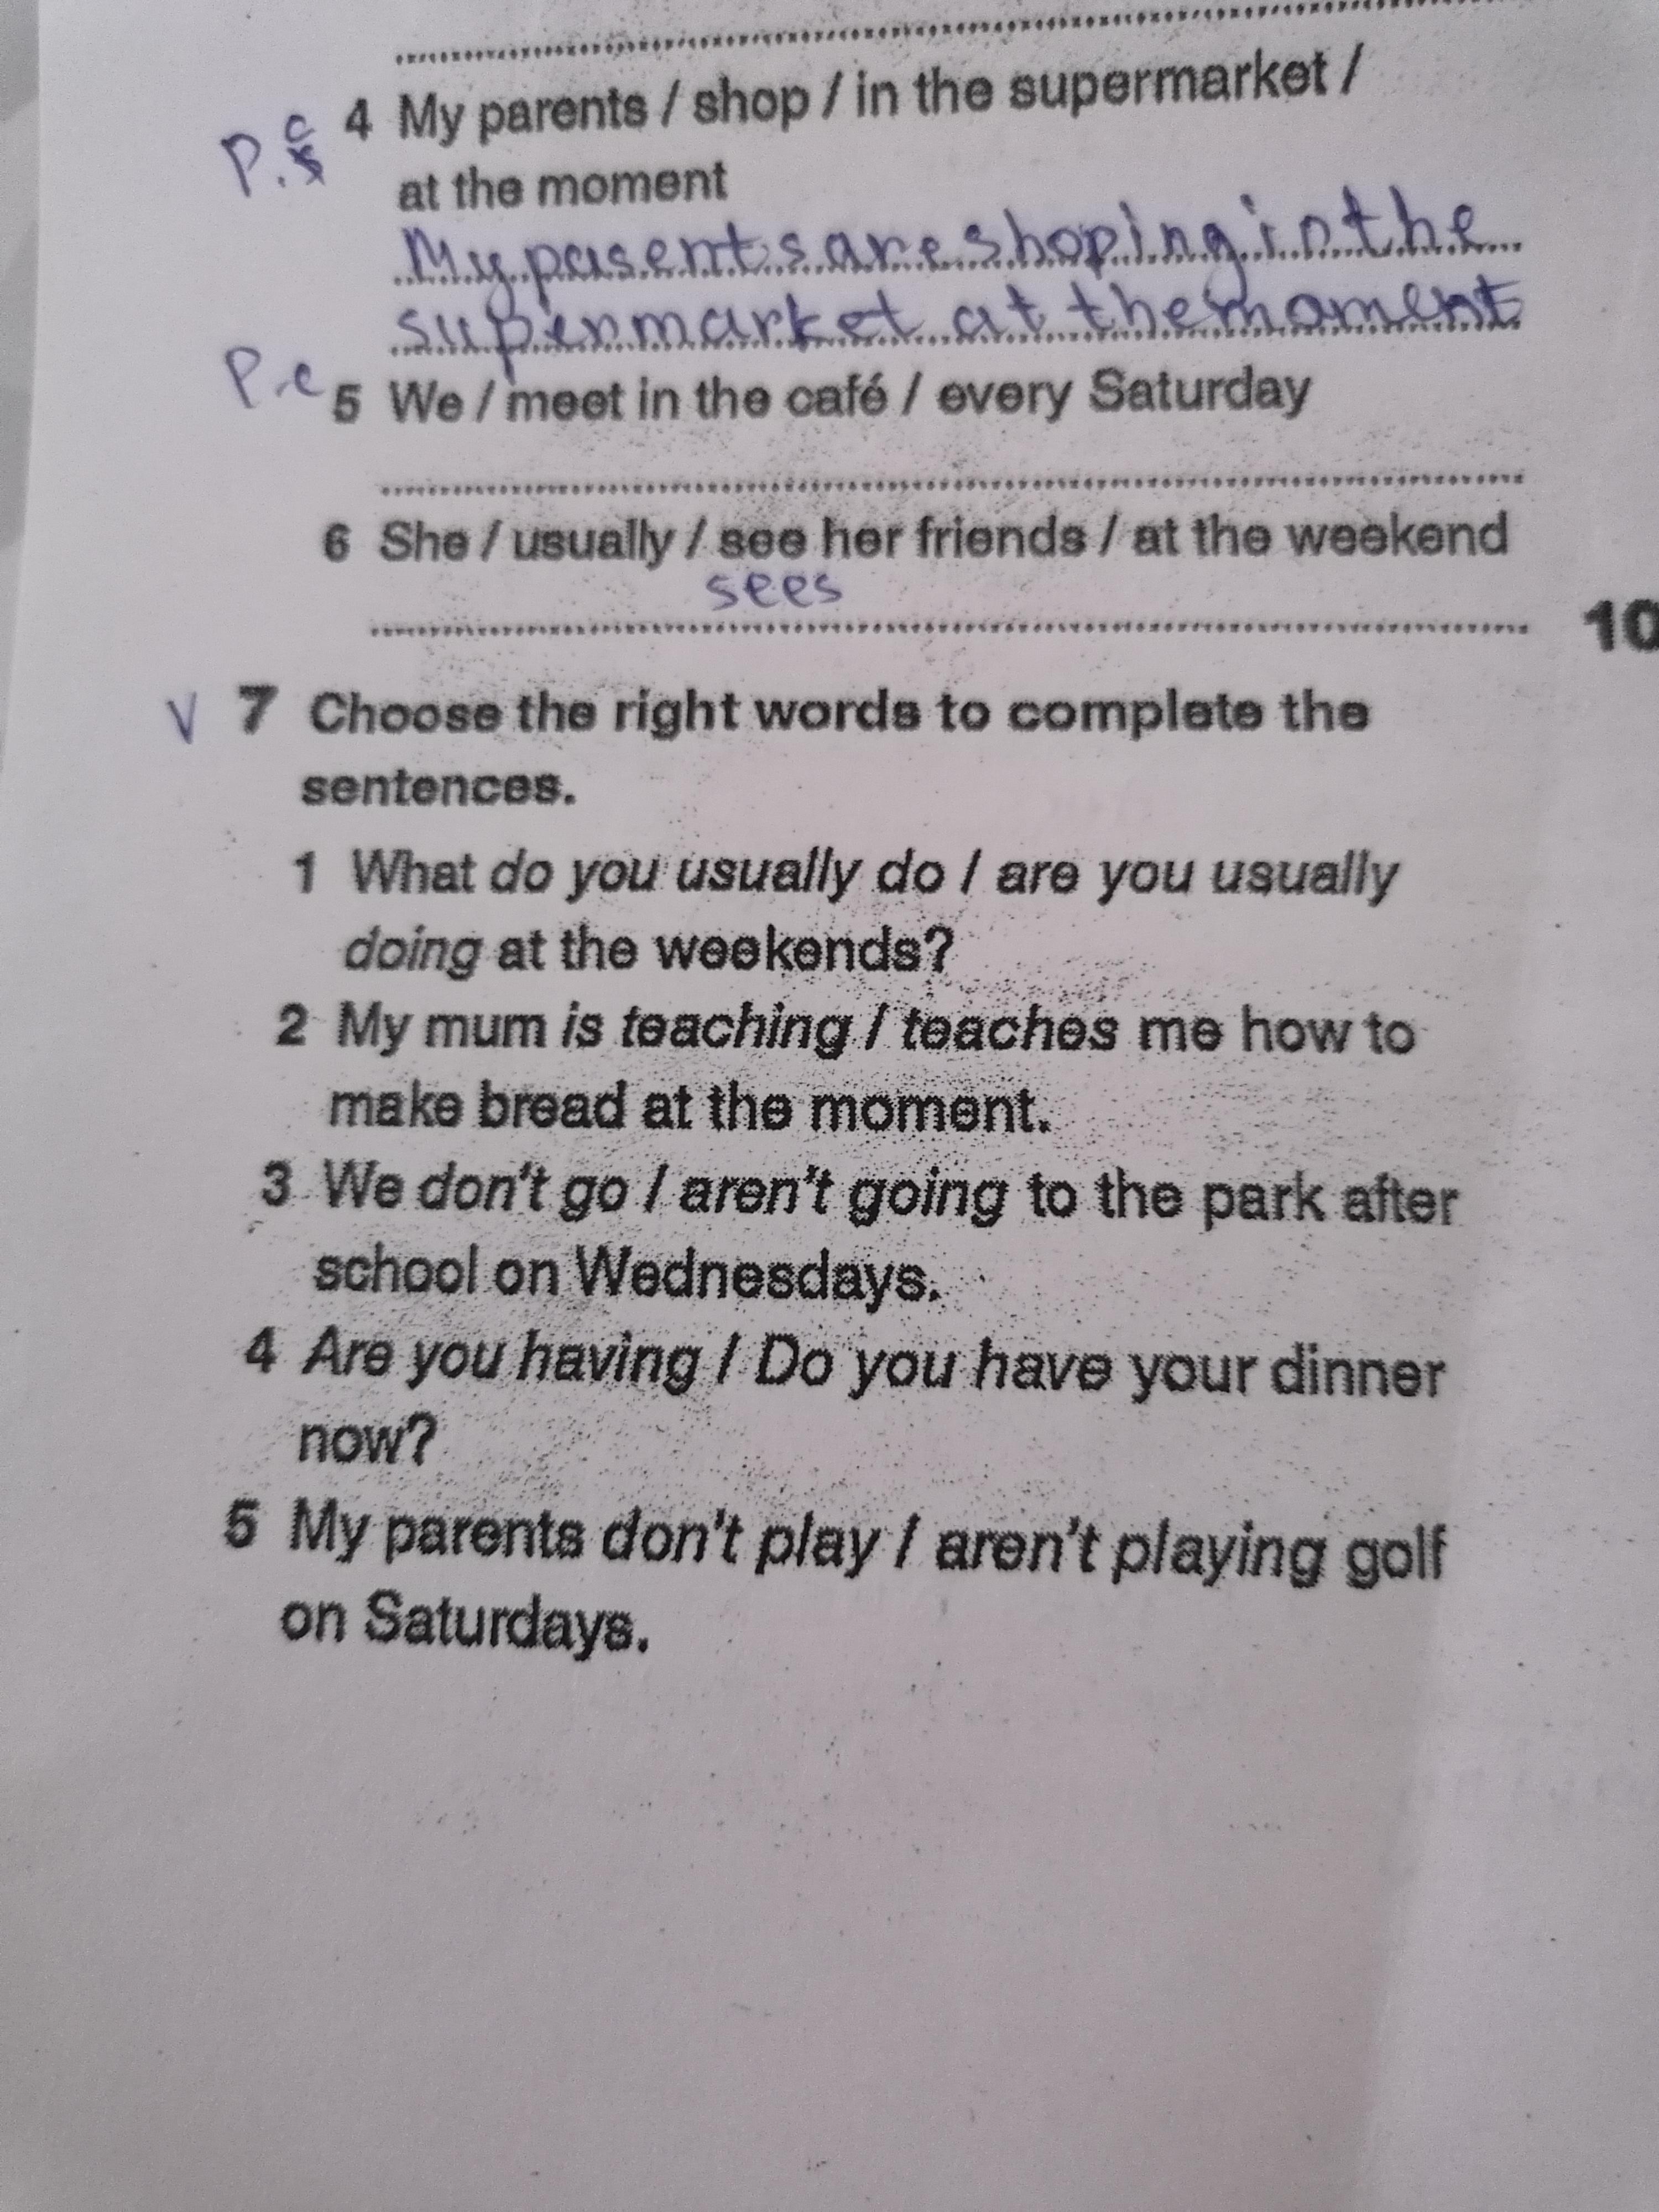 P.c 4 My parents / shop / in the supermarket /
at the moment
My parents are shoping in the
supermarket at the moment
P.c 5 We / meet in the café / every Saturday
6 She / usually / see her friends / at the weekend
sees
10
V 7 Choose the right words to complete the
sentences.
1 What do you usually do / are you usually
doing at the weekends?
2 My mum is teaching / teaches me how to
make bread at the moment.
3 We don't go / aren't going to the park after
school on Wednesdays.
4 Are you having / Do you have your dinner
now?
5 My parents don't play / aren't playing golf
on Saturdays.